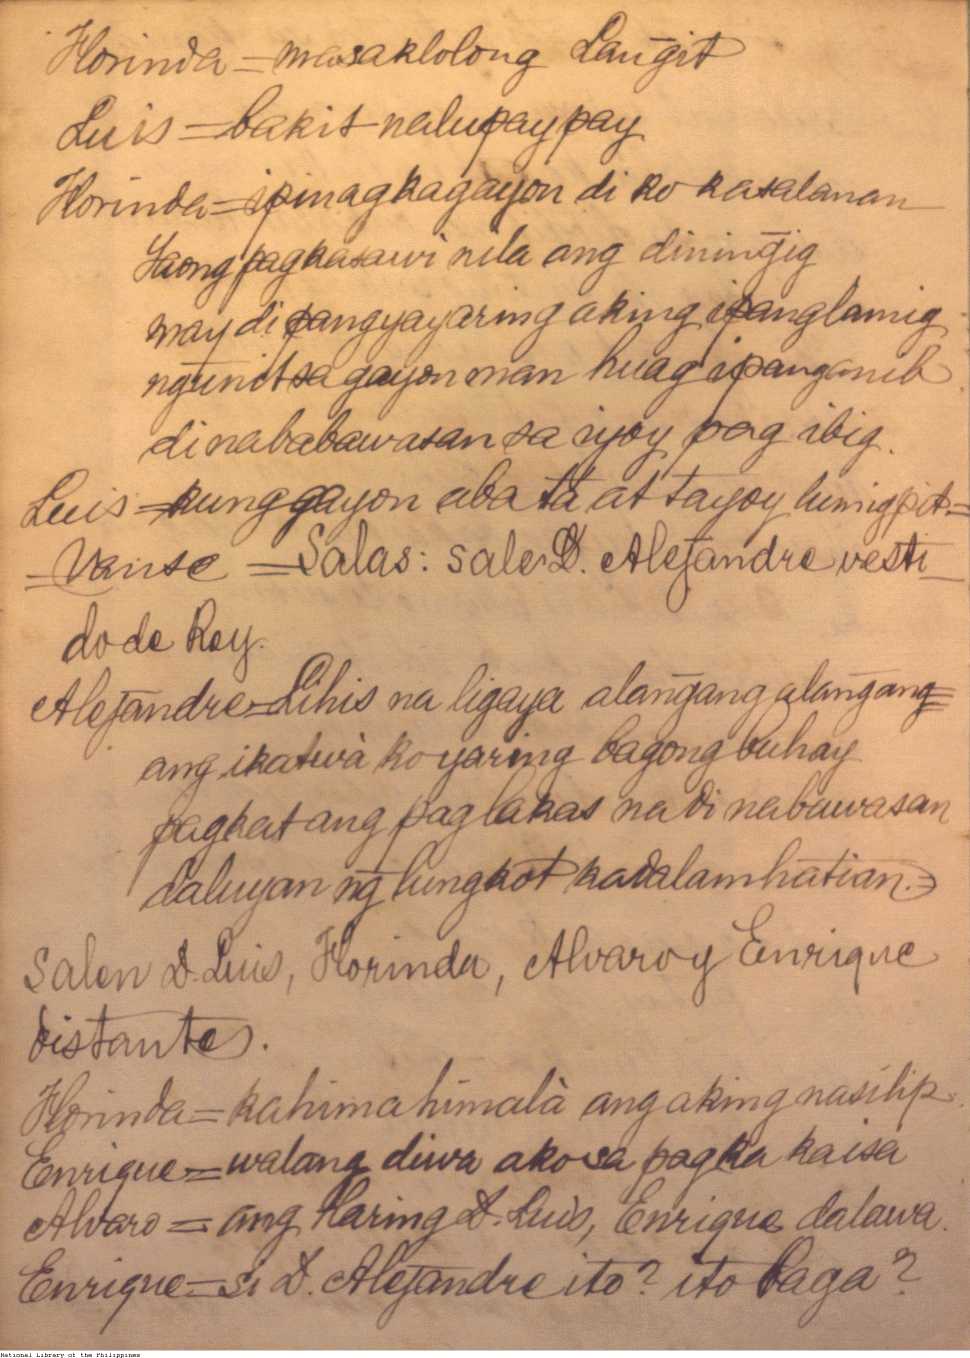 Florinda = masaklolong Lan͠git
Luis = bakit nalupaypay
Florinda = ipinagkagayon di ko kasalanan
Yaong pagkasawi nila ang dinin͠gig
may di pangyayaring aking ipanglamig
n͠gunit sa gayon man huag ipanganib
di nababawasan sa iyoy pag ibig.
Luis = kung gayon aba ta at tayoy lumigpit =
= Vanse = Salas: sale D. Alejandre vesti_
do de Rey.
Alejandre = Lihis na ligaya alan͠gang alan͠gang =
ang ikatwà ko yaring bagong buhay
pagkat ang paglakas na di nabawasan
daluyan n͠g lungkot kadalamhatian. =
Salen D. Luis, Florinda, Alvaro y Enrique
distantes.
Florinda = kahimahimalà ang aking nasilip.
Enrique = walang diwa ako sa pagka kaisa
Alvaro = ang Haring D. Luis, Enrique dalawa.
Enrique = si D. Alejandre ito? ito baga?
National Library of the Philippines